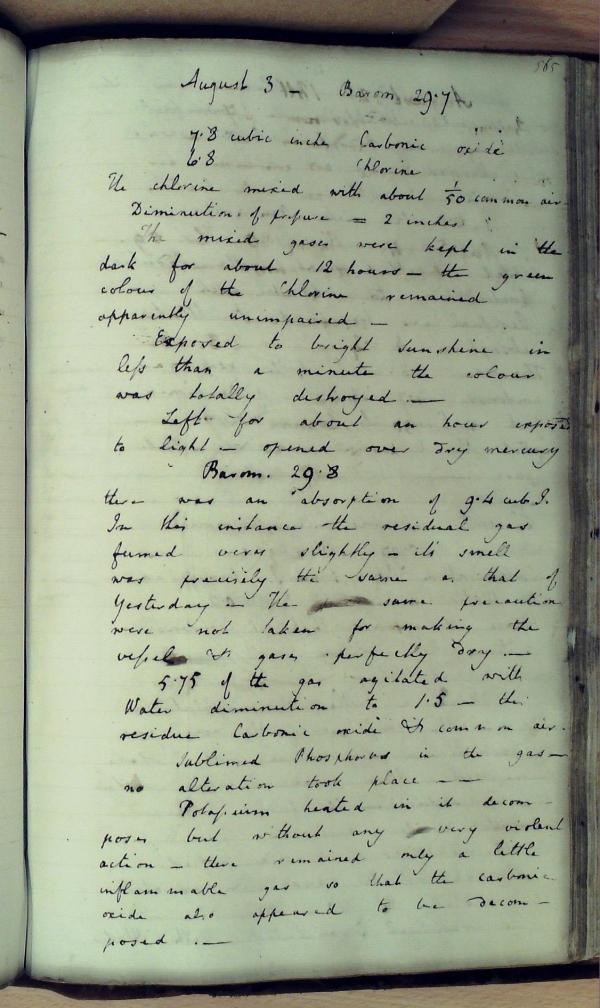 565
August 3 – Barom 29.7
7.8 cubic inche Carbonic oxide
6.8 Chlorine
The chlorine mixed with about 1/50 common air
Diminution of pressure = 2 inches
The mixed gases were kept in the
dark for about 12 hours – the green
colour of the Chlorine remained
apparently unimpaired –
Exposed to bright sunshine in
less than a minute the colour
was totally destroyed. –
Left for about an hour exposed
to light – opened over dry mercury
Barom. 29.8
there was an absorption of 9.4 cub I.
In this instance the residual gas
fumed very slightly – its smell
was precisely the same as that of
Yesterday – The same precaution
were not taken for making the
vessel & gases perfectly dry. –
5.75 of the gas agitated with
Water diminution to 1.5 – the
residue Carbonic oxide & common air.
Sublimed Phosphorus in the gas –
no alteration took place – –
Potassium heated in it decom–
poses but without any very violent
action – there remained only a little
inflammable gas so that the carbonic
oxide also appeared to be decom–
posed. –